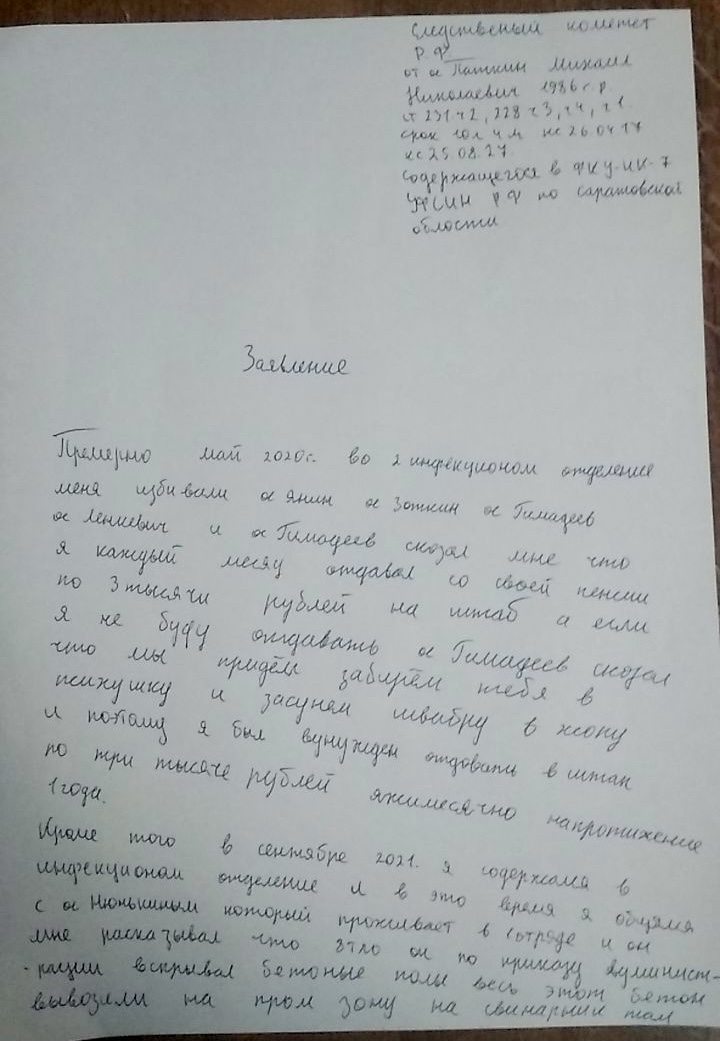 Следственый кометет
Р.Ф.
от ос Паткин Михаил
Николаевич 1986 г.р.
ст 231 ч 2, 228 ч 3, ч 4, ч 1
срок 10 л 4 м нс 26.04.17
кс 25.08.27.
содержащегося в ФКУ-ИК-7
УФСИН РФ по саратовской
области
Заявление
Премерно май 2020 г. во 2 инфекционом отделение
меня избивали ос Янин ос Зоткин ос Гимадеев
ос Ленкевич и ос Гимадеев скозал мне что
я каждый месяц отдавал со своей пенсии
по 3 тысячи рублей на штаб а если
я не буду отдавать ос Гимадеев скозал
что мы придём забирём тебя в
психушку и засунем швабру в жопу
и поэтому я был вунужден отдовать в штап
по три тысяче рублей яжимесячно напротижение
1 года.
Кроме того в сентябре 2021. я содержался в
инфекционом отделение и в это время я общался
с ос Нюнькиным который проживает в 1 отряде и он
мне расказывал что он по приказу админист-
-рации вскрывал бетоные полы весь этот бетон
вывозили на пром зону на свинарник там